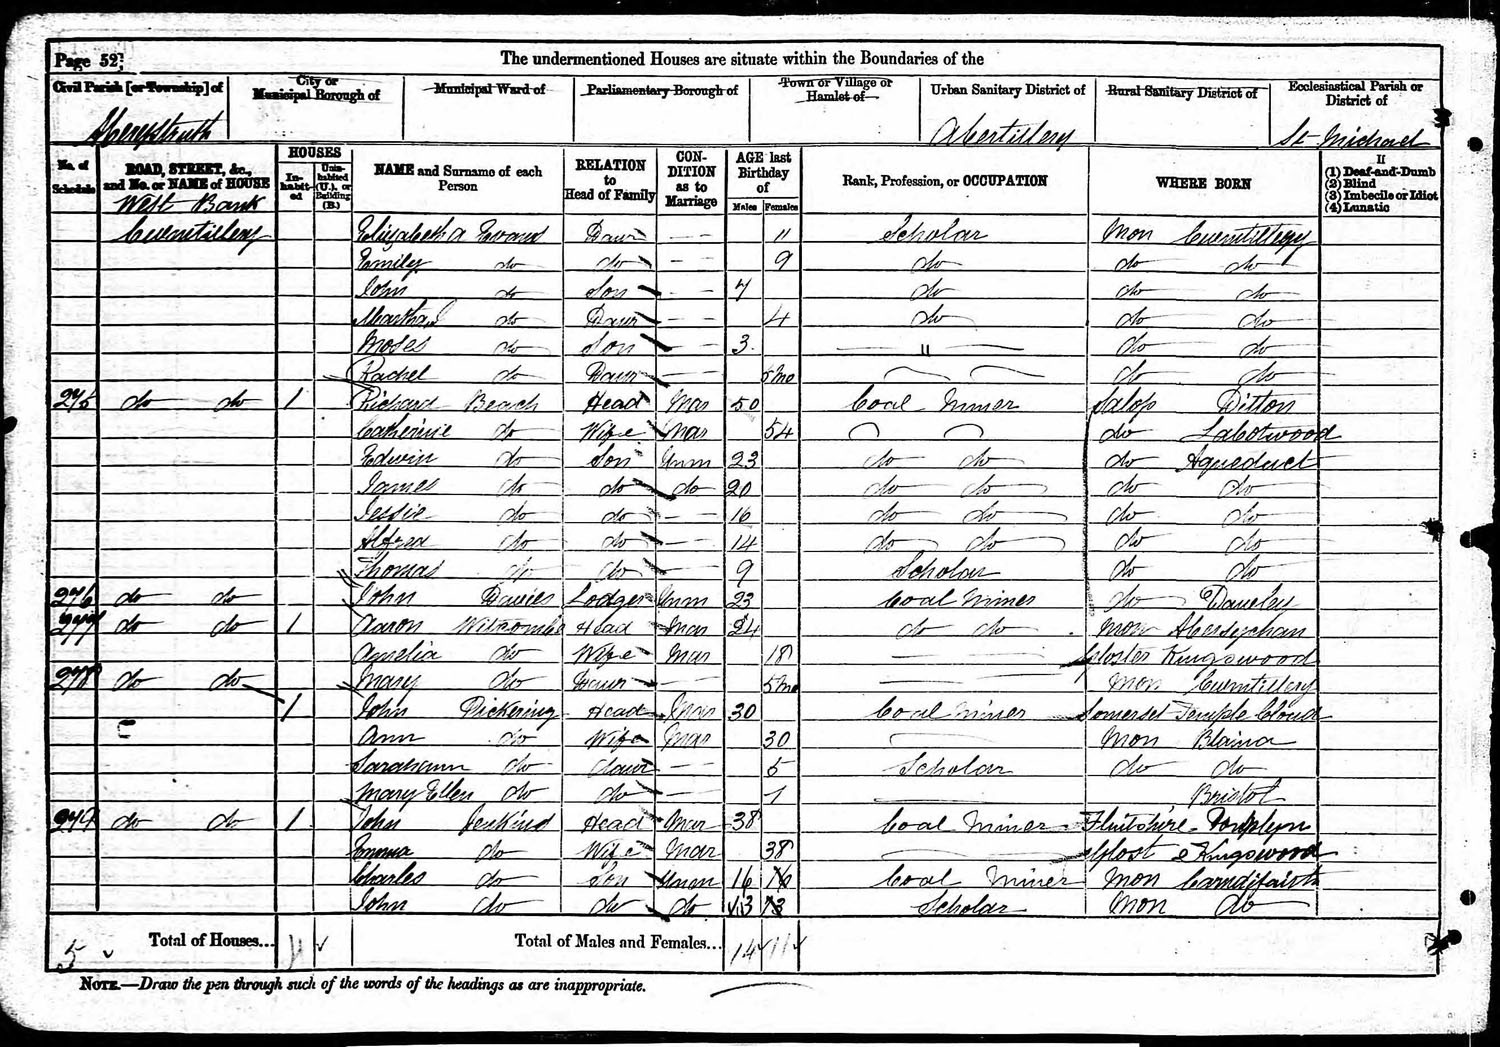 Page 52
The undermentioned Houses are situate within the Boundaries of the
Civil Parish [or Township] of
City or Municipal Borough of
Municipal Ward of
Parliamentary Borough of
Town or Village or Hamlet of
Urban Sanitary District of
Rural Sanitary District of
Ecclesiastical Parish or District of
Aberystruth Abertillery St Michael
No. of Schedule
ROAD, STREET, &c., and No. or NAME of HOUSE
HOUSES
In-habit-ed
Unin-habited (U.), or Building (B.)
NAME and Surname of each Person
RELATION to Head of Family
CON-DITION as to Marriage
AGE last Birthday of
Males Females
Rank, Profession, or OCCUPATION
WHERE BORN
If
(1) Deaf-and-Dumb
(2) Blind
(3) Imbecile or Idiot
(4) Lunatic
West Bank
Cwmtillery Elizabeth A Evans Daur 11 Scholar Mon Cwmtillery
Emily do do 9 do do do
John do Son 7 do do do
Martha do Daur 4 do do do
Moses do Son 3 " do do
Rachel do Daur 5 mo do do
275 do do 1 Richard Beach Head Mar 50 Coal Miner Salop Ditton
Catherine do Wife Mar 54 do Labotwood
Edwin do Son Unm 23 do do do Aqueduct
James do do do 20 do do do do
Jessie do do 16 do do do do
Alfred do do 14 do do do do
Thomas do do 9 Scholar do do
276 do do John Davies Lodger Unm 23 Coal Miner do Dawley
277 do do 1 Aaron Witcombe Head Mar 24 do do Mon Abersychan
Amelia do Wife Mar 18 Gloster Kingswood
278 do do Mary do Daur 5 mo Mon Cwmtillery
1 John Pickering Head Mar 30 Coal Miner Somerset Temple Cloud
Ann do Wife Mar 30 Mon Blaina
Sarahann do daur 5 Scholar do do
Mary Ellen do do 1 Bristol
279 do do 1 John Jenkins Head Mar 38 Coal Miner Flintshire
Emma do Wife Mar 38 Glost Kingswood
Charles do Son Unm 16 16 Coal Miner Mon
John do do do 13 13 Scholar Mon do
5 Total of Houses... 4 Total of Males and Females... 14 11
NOTE.—Draw the pen through such of the words of the headings as are inappropriate.